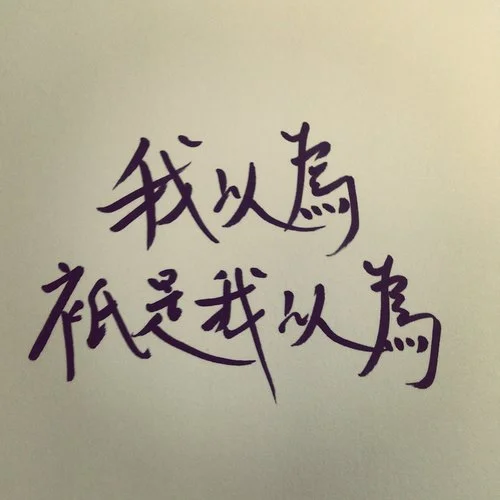 我以為
祇是我以為